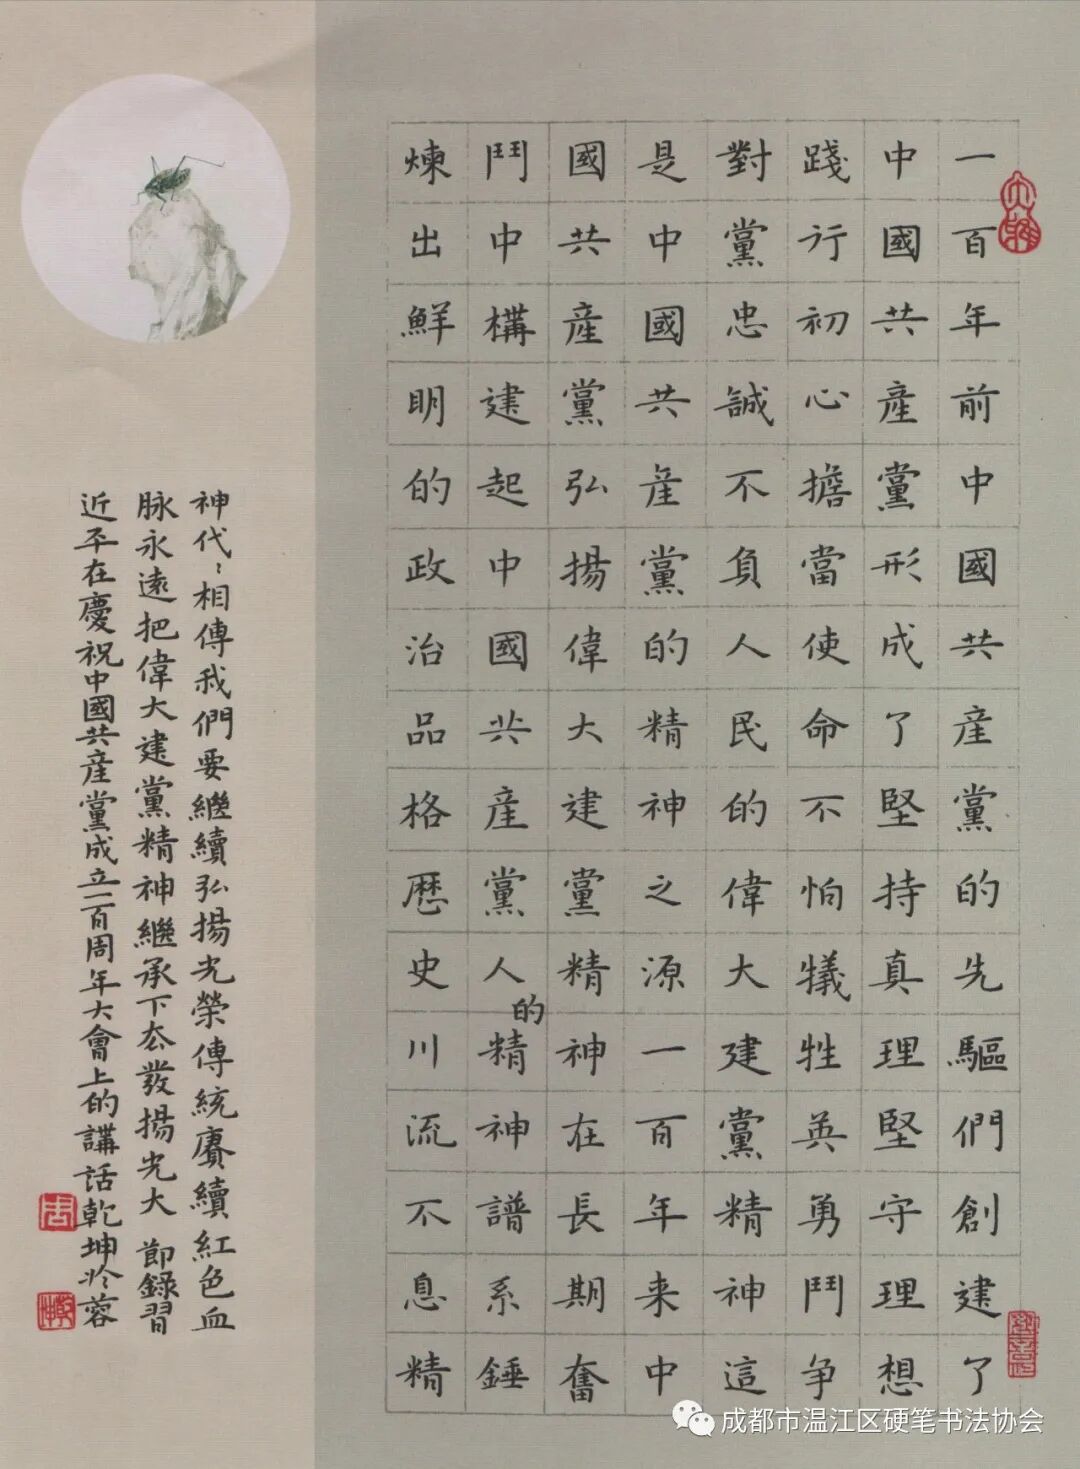 一百年前中國共産黨的先驅們創建了
中國共産黨形成了堅持真理堅守理想
踐行初心擔當使命不怕犠牲英勇鬥争
對黨忠誠不負人民的偉大建黨精神這
是中國共産黨的精神之源一百年来中
國共産黨弘揚偉大建黨精神在長期奮
鬥中構建起中國共産黨人的精神譜系錘
煉出鮮明的政治品格歷史川流不息精
神代〻相傳我們要繼續弘揚光榮傳統賡續紅色血
脉永遠把偉大建黨精神繼承下去發揚光大 節錄習
近平在慶祝中國共産黨成立一百周年大會上的講話乾坤於蓉
成都市温江区硬笔书法协会